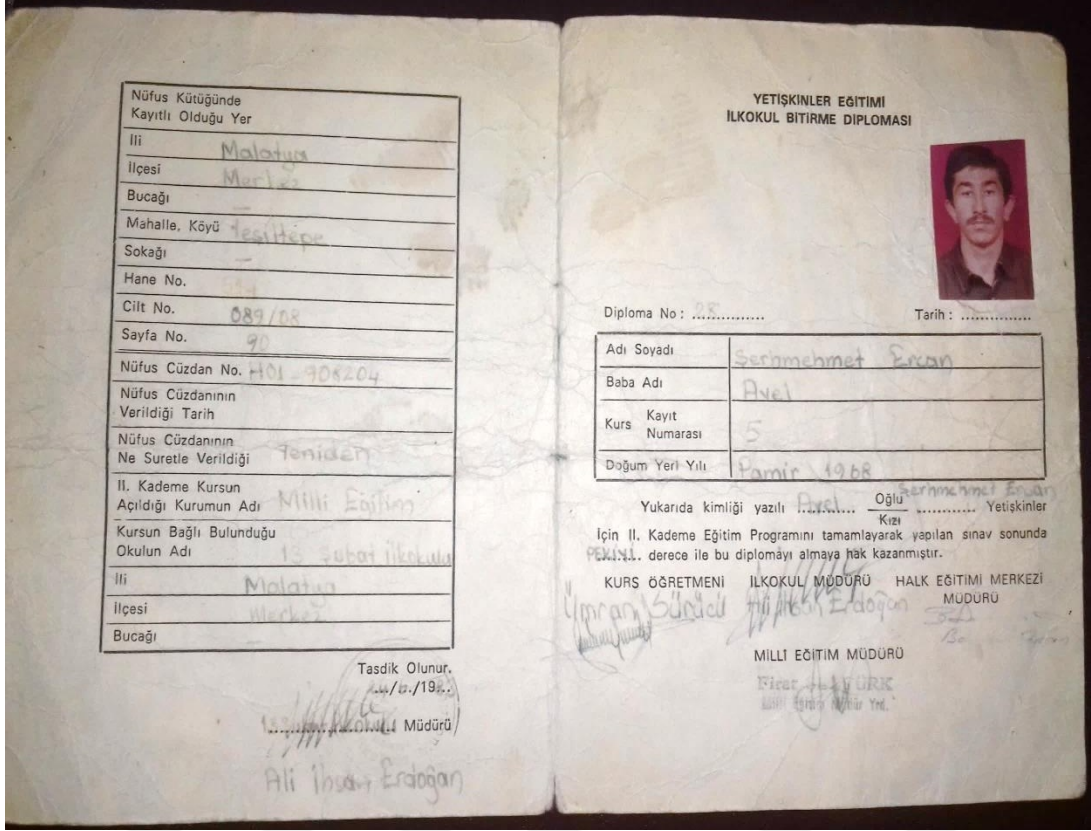 Nüfus Kütüğünde
Kayıtlı Olduğu Yer
İli Malatya
İlçesi Merkez
Bucağı —
Mahalle, Köyü Yeşiltepe
Sokağı —
Hane No.
Cilt No. 089/08
Sayfa No. 90
Nüfus Cüzdan No. H01-908204
Nüfus Cüzdanının
Verildiği Tarih
Nüfus Cüzdanının
Ne Suretle Verildiği Yeniden
II. Kademe Kursun
Açıldığı Kurumun Adı Milli Eğitim
Kursun Bağlı Bulunduğu
Okulun Adı 13 Şubat İlkokulu
İli Malatya
İlçesi Merkez
Bucağı
Tasdik Olunur.
Müdürü
Ali İhsan Erdoğan
YETİŞKİNLER EĞİTİMİ
İLKOKUL BİTİRME DİPLOMASI
Diploma No : 28 Tarih :
Adı Soyadı Şerhmehmet Ercan
Baba Adı Avel
Kurs Kayıt Numarası 5
Doğum Yeri Yılı Pamir 1968
Yukarıda kimliği yazılı Avel Oğlu Şerhmehmet Ercan
Kızı Yetişkinler
İçin II. Kademe Eğitim Programını tamamlayarak yapılan sınav sonunda
PEKİYİ derece ile bu diplomayı almaya hak kazanmıştır.
KURS ÖĞRETMENİ İLKOKUL MÜDÜRÜ HALK EĞİTİMİ MERKEZİ
MÜDÜRÜ
Ümran Sürücü Ali İhsan Erdoğan
MİLLİ EĞİTİM MÜDÜRÜ
Milli Eğitim Müdür Yrd.